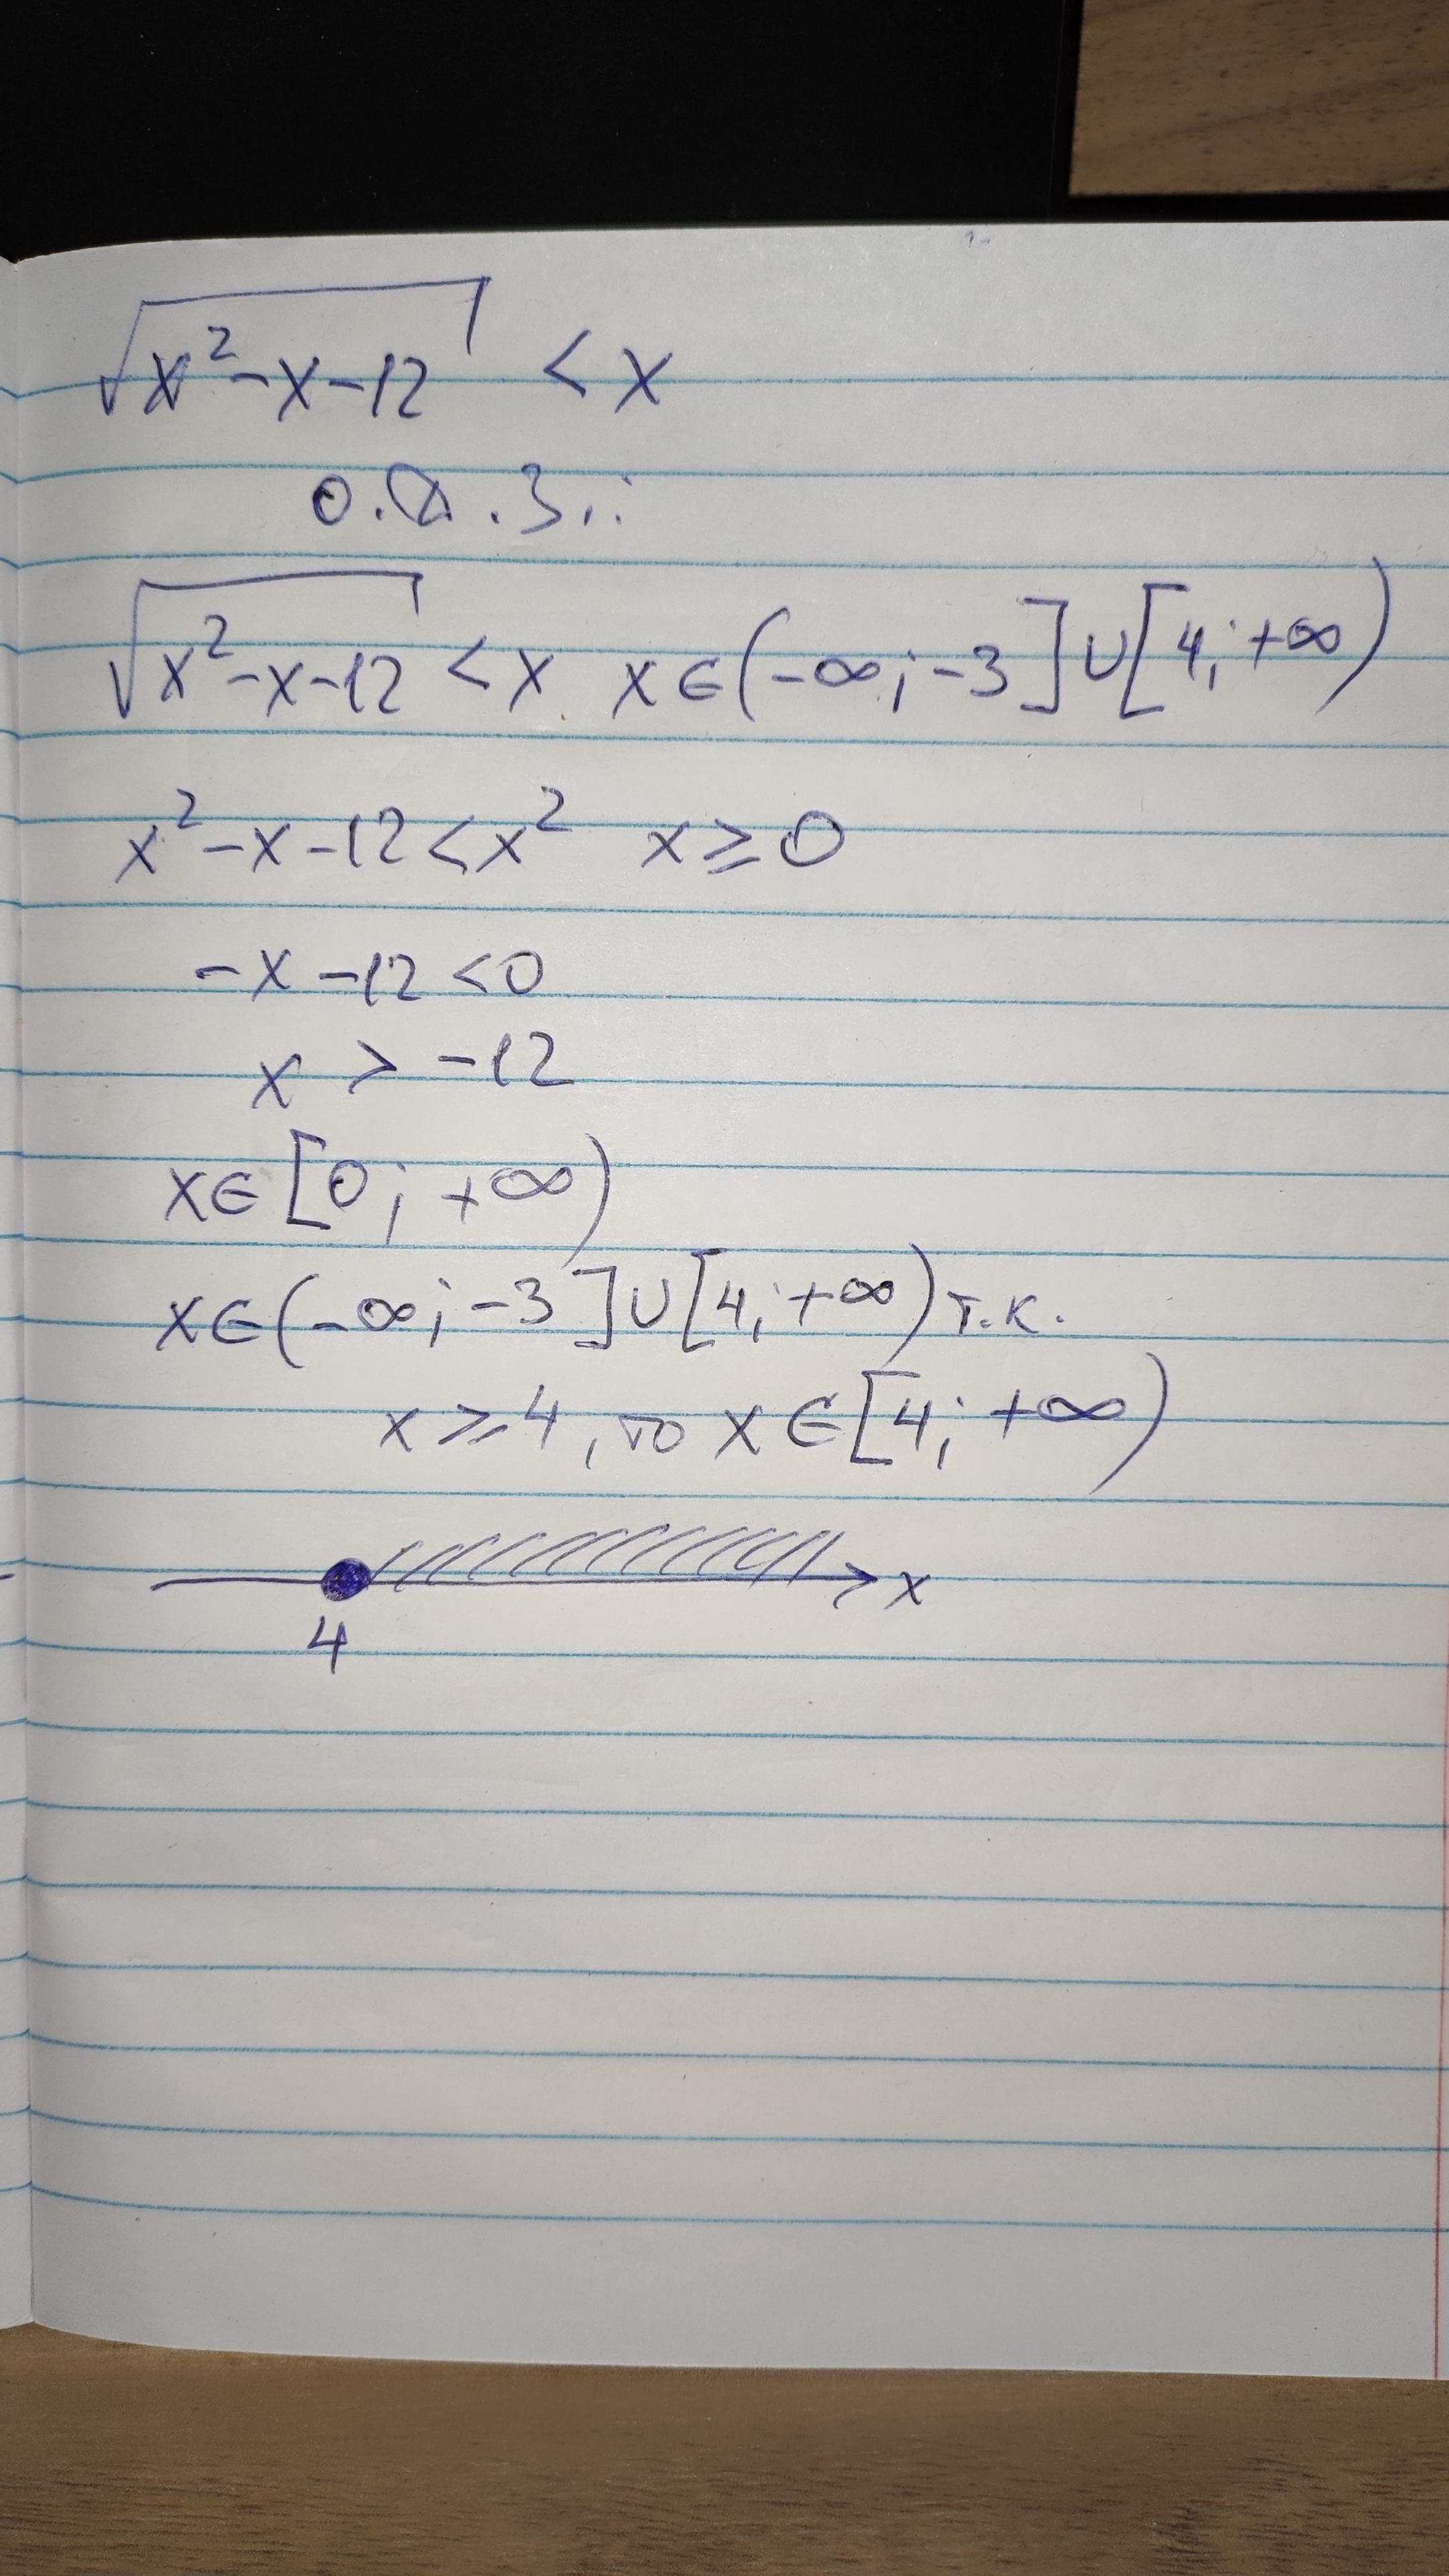 √(x²-x-12) < x
О.Д.З.:
√(x²-x-12) < x x∈(-∞; -3]∪[4; +∞)
x²-x-12<x² x≥0
-x-12<0
x > -12
x∈[0; +∞)
x∈(-∞; -3]∪[4; +∞) т.к.
x≥4, то x∈[4; +∞)
x
4